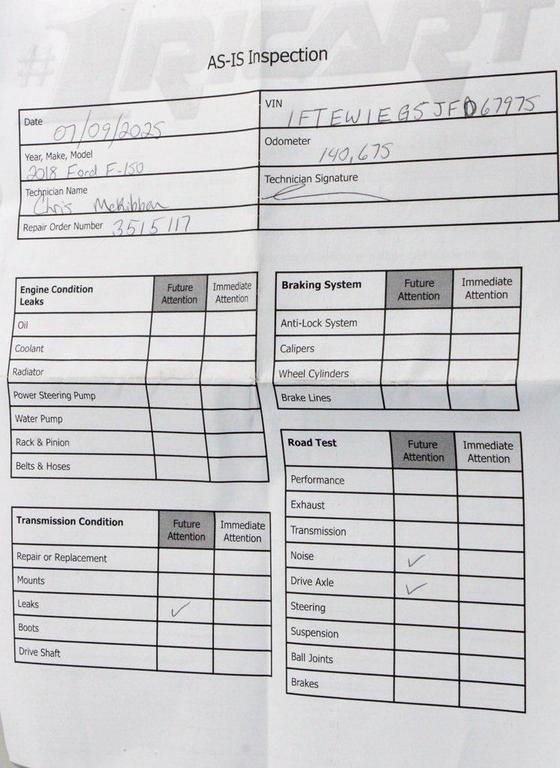 #1 RICART
AS-IS Inspection
Date 07/09/2025
VIN 1FTEW1EG5JFD67975
Year, Make, Model 2018 Ford F-150
Odometer 140,675
Technician Name Chris McKibban
Technician Signature
Repair Order Number 3515117
Engine Condition Leaks Future Attention Immediate Attention
Oil
Coolant
Radiator
Power Steering Pump
Water Pump
Rack & Pinion
Belts & Hoses
Transmission Condition Future Attention Immediate Attention
Repair or Replacement
Mounts
Leaks ✓
Boots
Drive Shaft
Braking System Future Attention Immediate Attention
Anti-Lock System
Calipers
Wheel Cylinders
Brake Lines
Road Test Future Attention Immediate Attention
Performance
Exhaust
Transmission
Noise ✓
Drive Axle ✓
Steering
Suspension
Ball Joints
Brakes